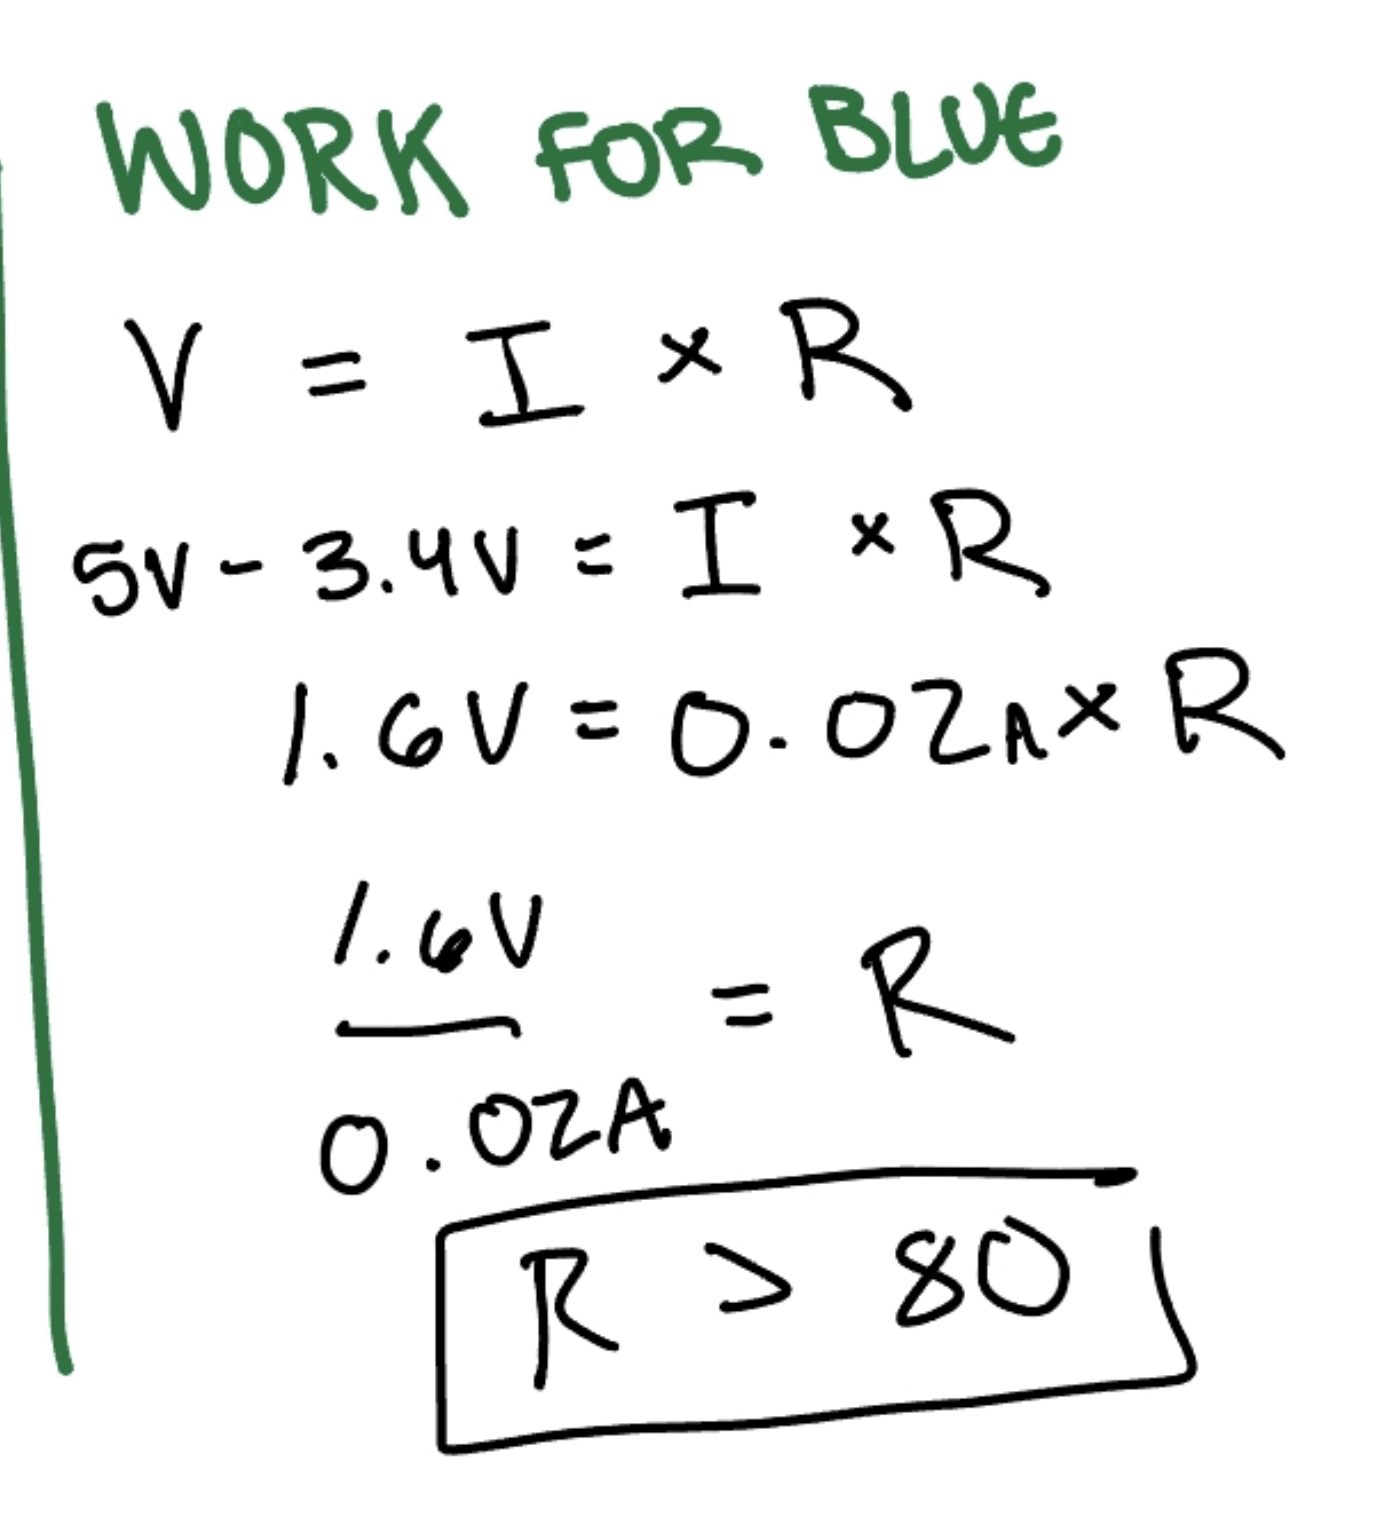 WORK FOR BLUE
V = I × R
5V - 3.4V = I × R
1.6V = 0.02A × R
1.6V
= R
0.02A
R > 80